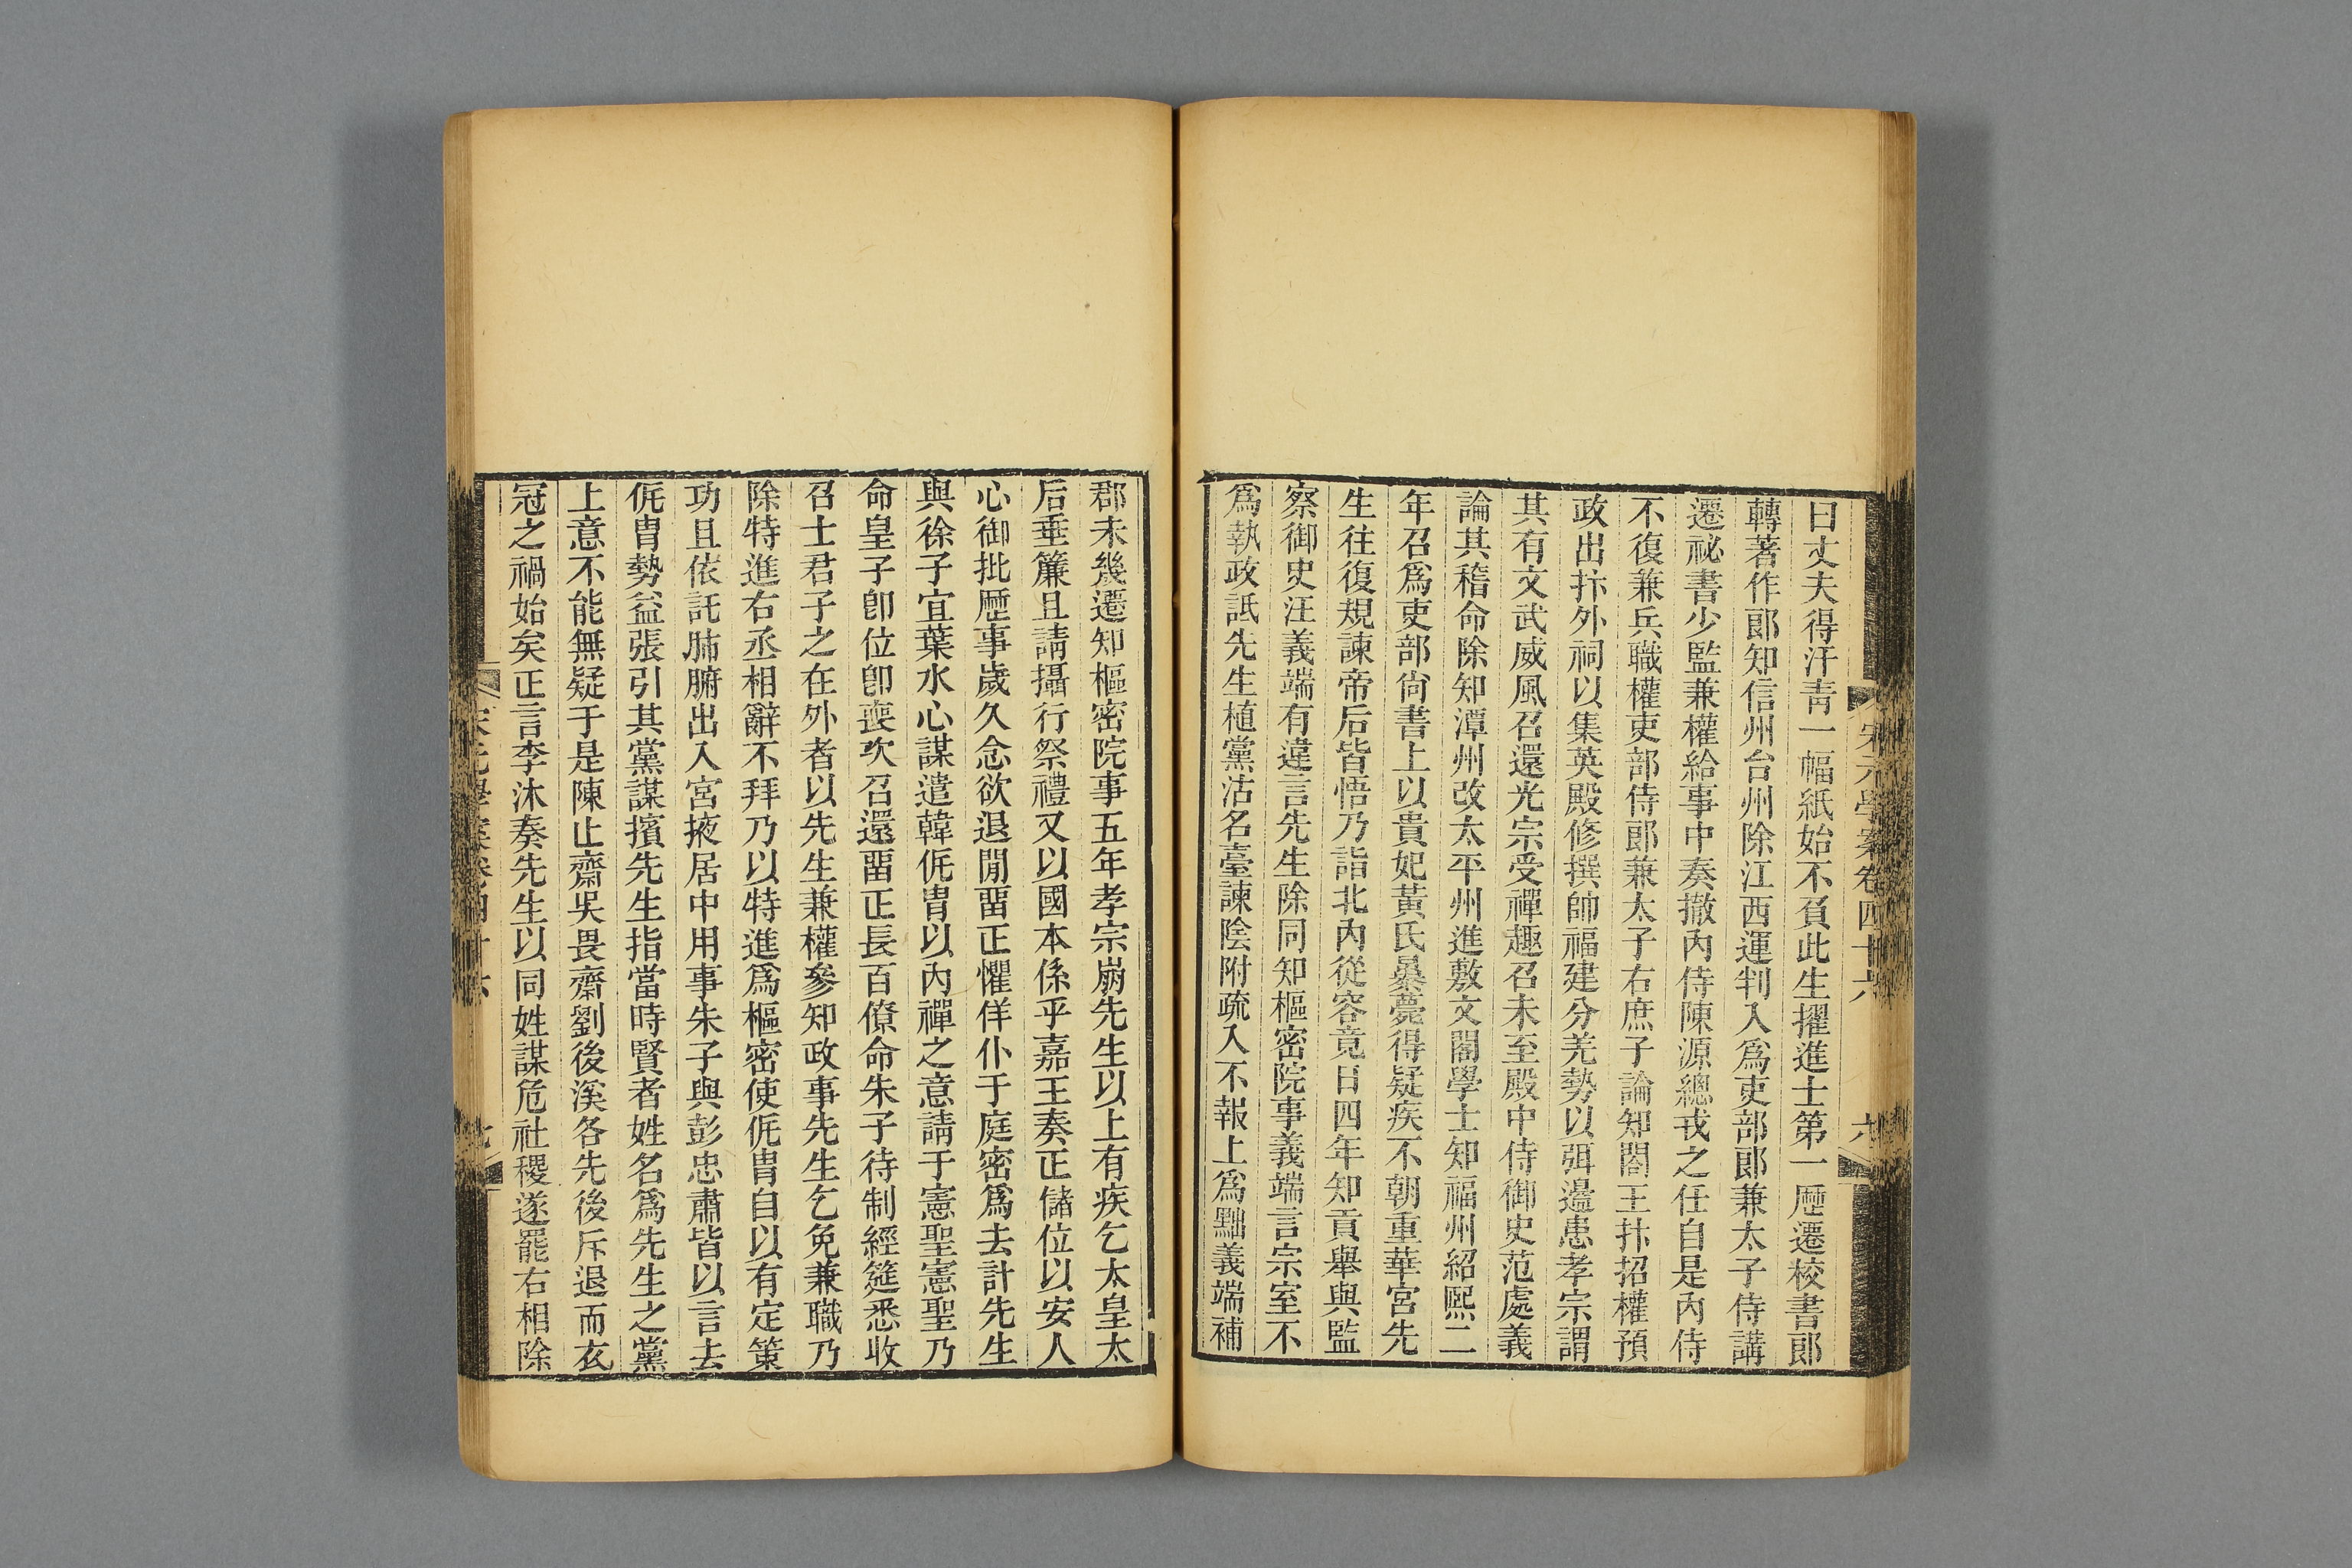 宋元學案卷四十六
六
曰丈夫得汗靑一幅紙始不負此生擢進士第一歷遷校書郞
轉著作郞知信州台州除江西運判入爲吏部郞兼太子侍講
遷祕書少監兼權給事中奏撤內侍陳源總戎之任自是內侍
不復兼兵職權吏部侍郞兼太子右庶子論知閤王抃招權預
政出抃外祠以集英殿修撰帥福建分羌勢以弭邊患孝宗謂
其有文武威風召還光宗受禪趣召未至殿中侍御史范處義
論其稽命除知潭州改太平州進敷文閣學士知福州紹熙二
年召爲吏部尙書上以貴妃黃氏暴薨得疑疾不朝重華宮先
生往復規諫帝后皆悟乃詣北內從容竟日四年知貢舉與監
察御史汪義端有違言先生除同知樞密院事義端言宗室不
爲執政詆先生植黨沽名臺諫陰附疏入不報上爲黜義端補
郡未幾遷知樞密院事五年孝宗崩先生以上有疾乞太皇太
后垂簾且請攝行祭禮又以國本係乎嘉王奏正儲位以安人
心御批歷事歲久念欲退閒畱正懼佯仆于庭密爲去計先生
與徐子宜葉水心謀遣韓侂冑以內禪之意請于憲聖憲聖乃
命皇子卽位卽喪次召還畱正長百僚命朱子待制經筵悉收
召士君子之在外者以先生兼權參知政事先生乞免兼職乃
除特進右丞相辭不拜乃以特進爲樞密使侂冑自以有定策
功且依託肺腑出入宮掖居中用事朱子與彭忠肅皆以言去
侂冑勢益張引其黨謀擯先生指當時賢者姓名爲先生之黨
上意不能無疑于是陳止齋吳畏齋劉後溪各先後斥退而衣
冠之禍始矣正言李沐奏先生以同姓謀危社稷遂罷右相除
宋元學案卷四十六
七